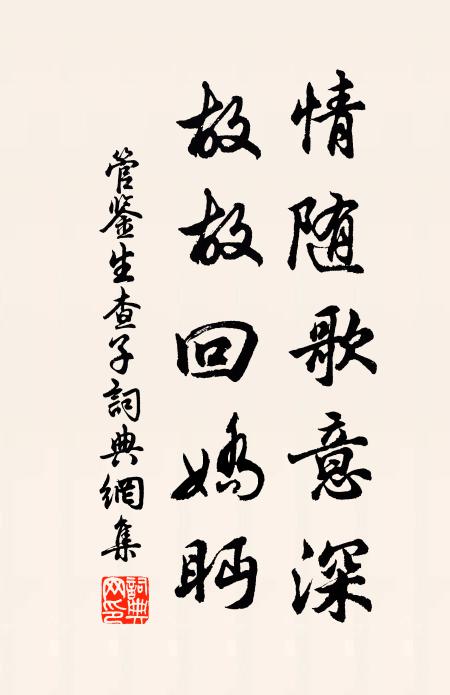 情随歌意深
故故回嬌眄
管鉴生查子詞典網集
詞典網印